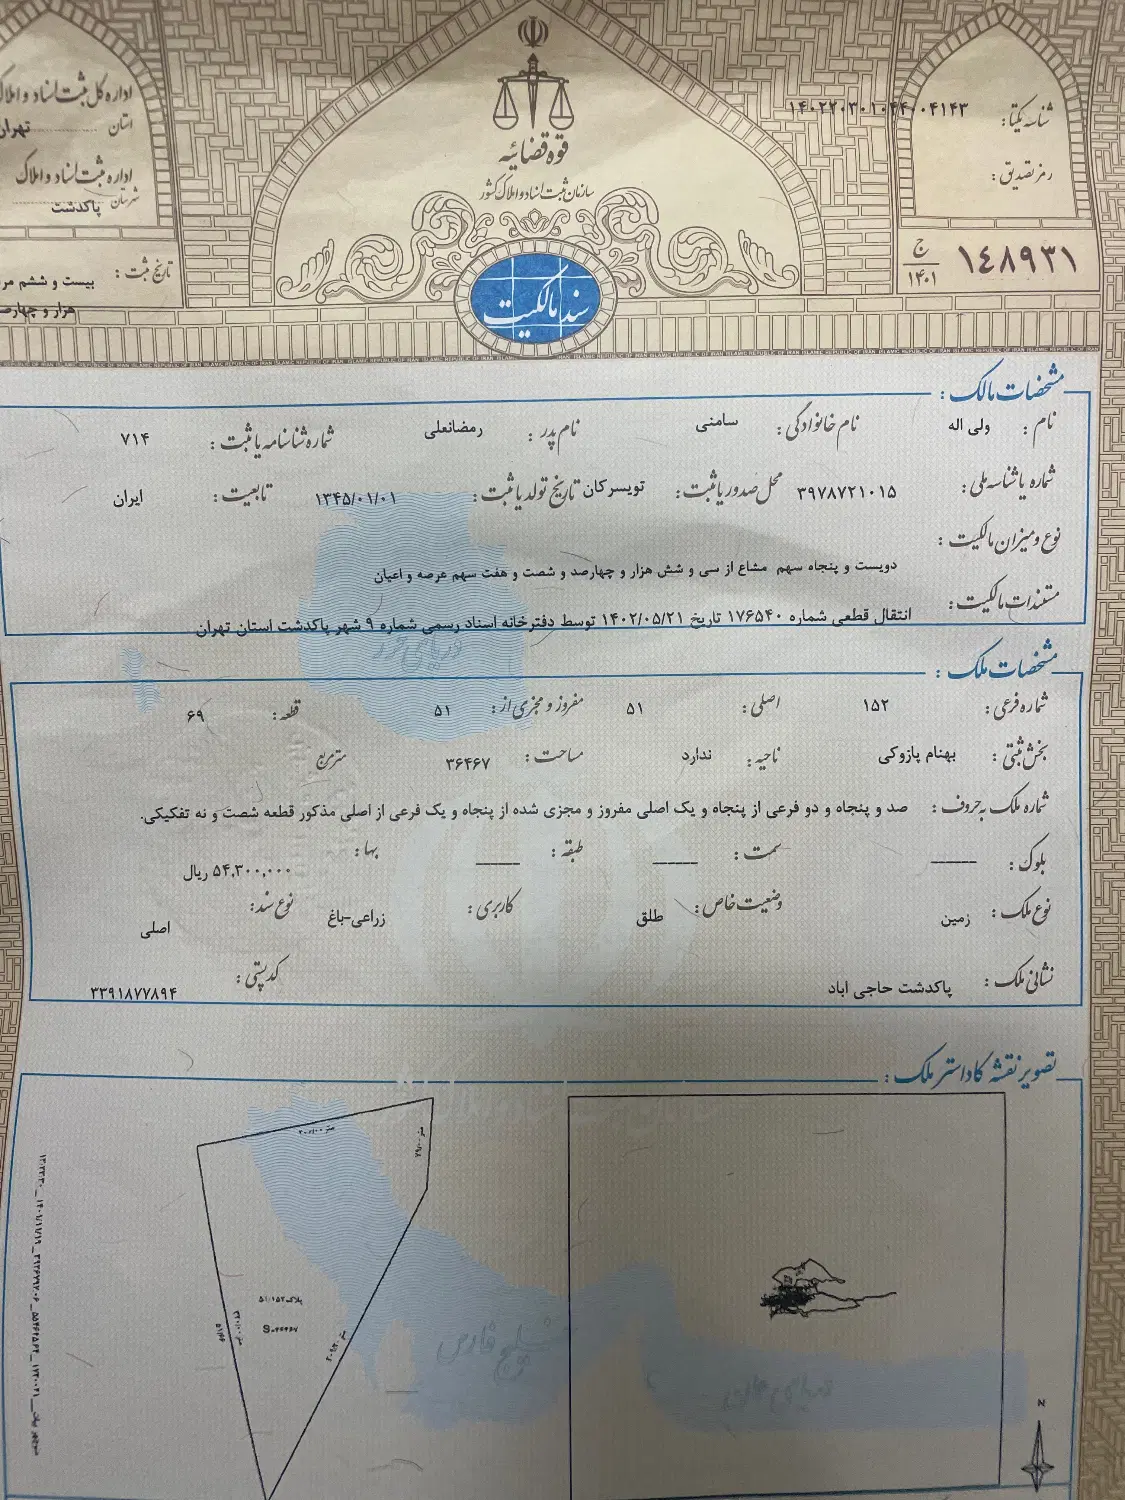 قوه قضائیه
سازمان ثبت اسناد و املاک کشور
سند مالکیت
شناسه یکتا: ۱۴۰۲۲۰۳۰۱۰۴۴۰۰۴۱۴۳
رمز تصدیق:
۱۴۸۹۳۱ ج ۱۴۰۱
اداره کل ثبت اسناد و املاک
استان تهران
اداره ثبت اسناد و املاک
شهرستان پاکدشت
تاریخ ثبت: بیست و ششم
هزار و
مشخصات مالک:
نام: ولی اله نام خانوادگی: سامنی نام پدر: رمضانعلی شماره شناسنامه یا ثبت: ۷۱۴
شماره یا شناسه ملی: ۳۹۷۸۷۲۱۰۱۵ محل صدور یا ثبت: تویسرکان تاریخ تولد یا ثبت: ۱۳۴۵/۰۱/۰۱ تابعیت: ایران
نوع و میزان مالکیت:
دویست و پنجاه سهم مشاع از سی و شش هزار و چهارصد و شصت و هفت سهم عرصه و اعیان
مستندات مالکیت:
انتقال قطعی شماره ۱۷۶۵۴۰ تاریخ ۱۴۰۲/۰۵/۲۱ توسط دفترخانه اسناد رسمی شماره ۹ شهر پاکدشت استان تهران
مشخصات ملک:
شماره فرعی: ۱۵۲ اصلی: ۵۱ مفروز و مجزی از: ۵۱ قطعه: ۶۹
بخش ثبتی: بهنام پازوکی ناحیه: ندارد مساحت: ۳۶۴۶۷ مترمربع
شماره ملک به حروف: صد و پنجاه و دو فرعی از پنجاه و یک اصلی مفروز و مجزی شده از پنجاه و یک فرعی از اصلی مذکور قطعه شصت و نه تفکیکی.
بلوک: ــــــ سمت: ــــــ طبقه: ــــــ بها: ۵۴,۳۰۰,۰۰۰ ریال
نوع ملک: زمین وضعیت خاص: طلق کاربری: زراعی-باغ نوع سند: اصلی
نشانی ملک: پاکدشت حاجی اباد کدپستی: ۳۳۹۱۸۷۷۸۹۴
تصویر نقشه کاداستر ملک:
پلاک ۵۱/۱۵۲
خلیج فارس
N